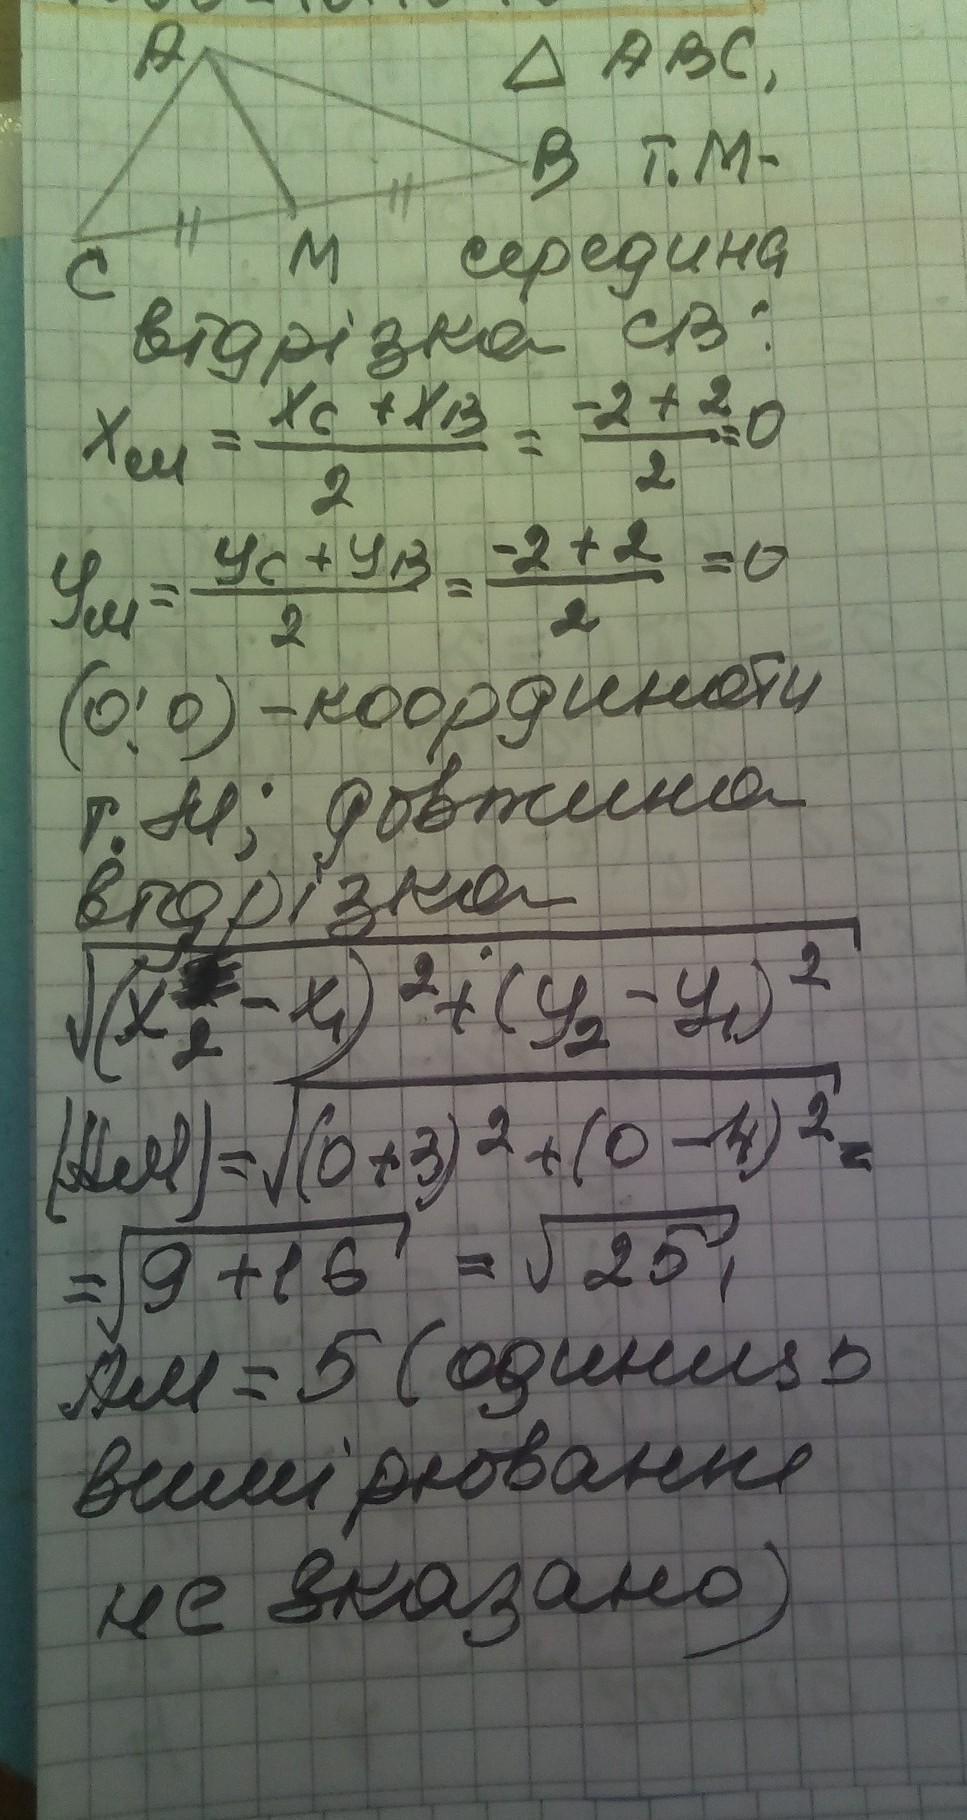 A
△ ABC,
B т. М-
C M середина
відрізка CB:
Xм = (Xc + XB)/2 = (-2 + 2)/2 = 0
Yм = (Yc + YB)/2 = (-2 + 2)/2 = 0
(0; 0) - координати
т. М; довжина
відрізка
√((X2 - X1)² + (Y2 - Y1)²)
|AM| = √((0+3)² + (0-4)²) =
= √(9+16) = √25,
AM = 5 (одиниць
вимірювання
не вказано)